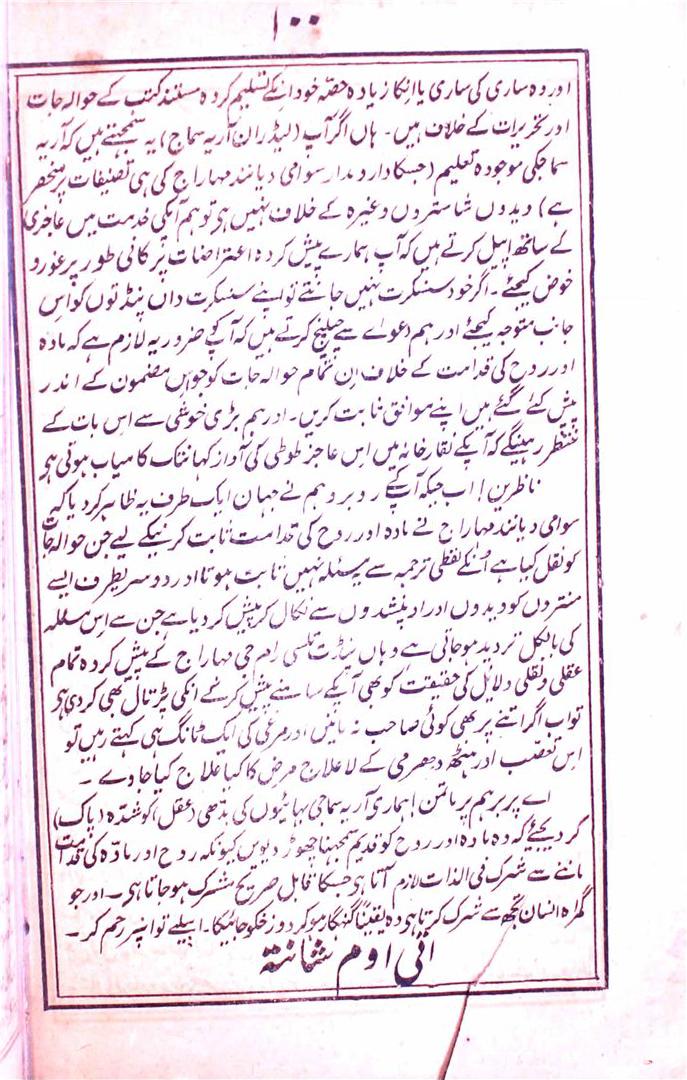 ۱۰۰
اور وہ ساری کی ساری یا انکا زیادہ حصہ خود انکے تسلیم کردہ مستند کتب کے حوالہ جات
اور تحریرات کے خلاف ہیں۔ ہاں اگر آپ (لیڈران آریہ سماج) یہ سمجھتے ہیں کہ آریہ
سماجکی موجودہ تعلیم (جسکا دارومدار سوامی دیانند مہاراج کی ہی تصنیفات پر منحصر
ہے) ویدوں شاستروں وغیرہ کے خلاف نہیں ہی تو ہم آپکی خدمت میں عاجزی
کے ساتھ اپیل کرتے ہیں کہ آپ ہمارے پیش کردہ اعتراضات پر کافی طور پر غور و
خوض کیجئے۔ اگر خود سنسکرت نہیں جانتے تو اپنے سنسکرت داں پنڈتوں کو اس
جانب متوجہ کیجئے اور ہم دعوے سے چیلنج کرتے ہیں کہ آپکے ضرور یہ لازم ہے کہ مادہ
اور روح کی قدامت کے خلاف ان تمام حوالہ جات کو جو اس مضمون کے اندر
پیش کئے گئے ہیں اپنے موافق ثابت کریں۔ اور ہم بڑی خوشی سے اس بات کے
منتظر رہینگے کہ آپکے نقارخانہ میں اس عاجز طوطی کی آواز کہانتک کامیاب ہوتی ہی
ناظرین! اب جبکہ آپکے روبرو ہم نے جہان ایک طرف یہ ظاہر کردیا کہ
سوامی دیانند مہاراج نے مادہ اور روح کی قدامت ثابت کرنیکے لیے جن حوالہ جات
کو نقل کیا ہے اُنکے لفظی ترجمہ سے یہ مسئلہ نہیں ثابت ہوتا اور دوسریطرف ایسے
منتروں کو ویدوں اور اوپنشدوں سے نکال کر پیش کردیا ہے جن سے اس مسئلہ
کی بالکل تردید ہوجاتی ہے وہاں پنڈت تلسی رام جی مہاراج کے پیش کردہ تمام
عقلی و نقلی دلایل کی حقیقت کو بھی آپکے سامنے پیش کرکے انکی پڑتال بھی کردی ہی
تو اب اگر اتنے پر بھی کوئی صاحب نہ مانیں اور مرغی کی ایک ٹانگ ہی کہتے رہیں تو
اس تعصب اور ہٹھ دھرمی کے لاعلاج مرض کا کیا علاج کیا جاوے۔
اے پر برہم پرماتمن! ہماری آریہ سماجی بھائیوں کی بدھی (عقل) کو شدہ (پاک)
کر دیجئے کہ وہ مادہ اور روح کو قدیم سمجہنا چھوڑ دیویں کیونکہ روح اور مادہ کی قدامت
ماننے سے شرک فی الذات لازم آتا ہی جسکا قایل صریح مشرک ہوجاتا ہی۔ اور جو
گمراہ انسان تجھ سے شرک کرتا ہی وہ یقیناً گنہگار ہو کر دوزخکو جائیگا۔ اسیلیے تو انپر رحم کر۔
اتی اوم شانتہ